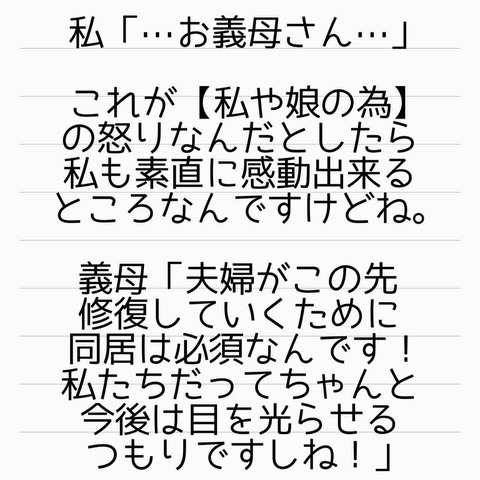 私「…お義母さん…」
これが【私や娘の為】
の怒りなんだとしたら
私も素直に感動出来る
ところなんですけどね。
義母「夫婦がこの先
修復していくために
同居は必須なんです！
私たちだってちゃんと
今後は目を光らせる
つもりですしね！」